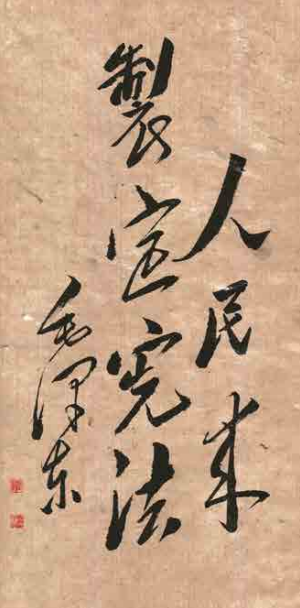 人民来
製定宪法
毛泽东